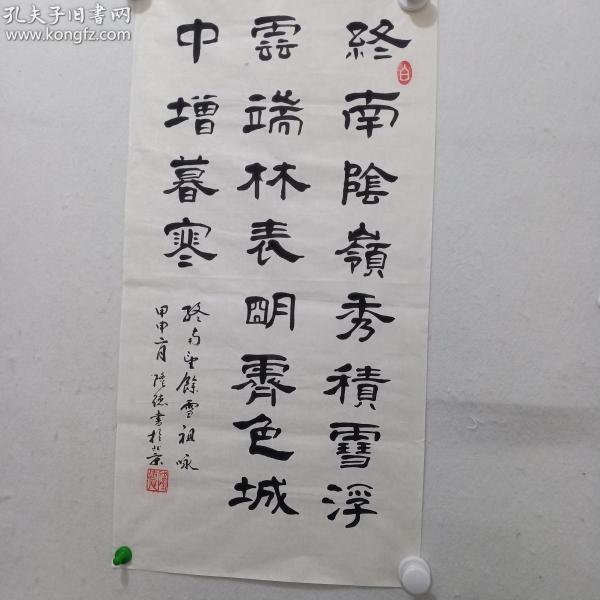 孔夫子旧书网
www.kongfz.com
終南陰嶺秀積雪浮
雲端林表明霽色城
中增暮寒
終南望餘雪祖咏
甲申六月隆德書於北京